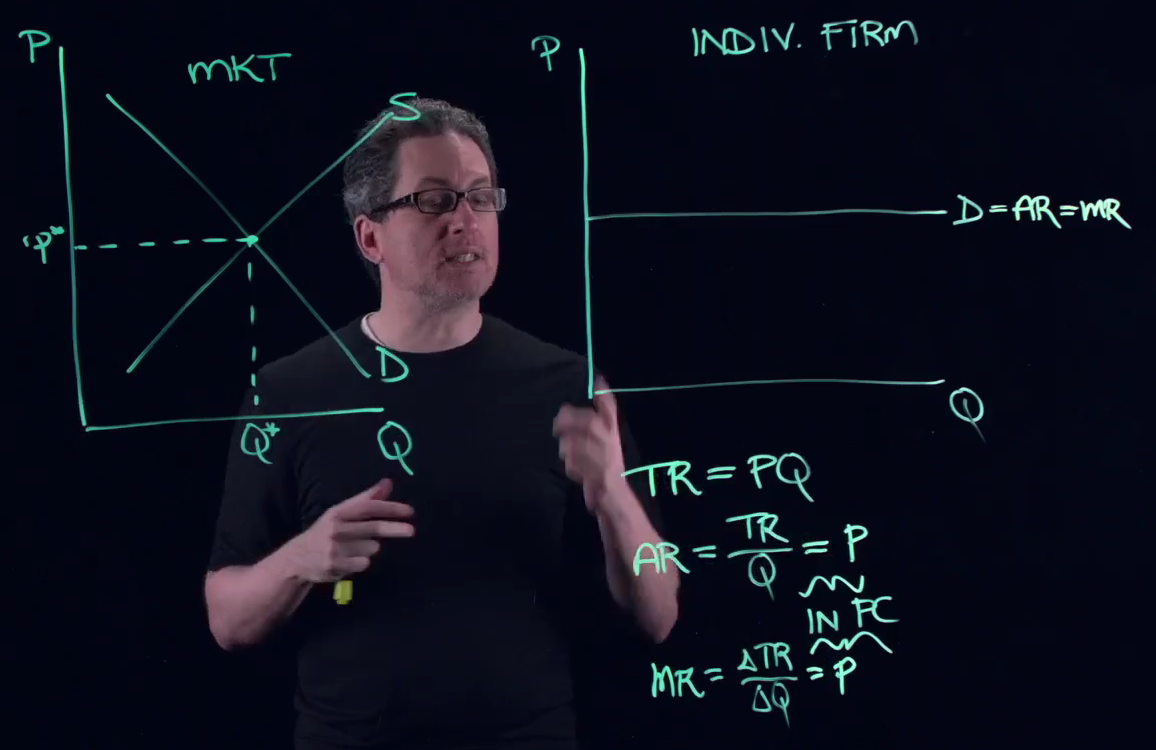 P
MKT
S
P*
D
Q*
Q
INDIV. FIRM
P
D = AR = MR
Q
TR = PQ
AR = TR/Q = P
IN PC
MR = ΔTR/ΔQ = P